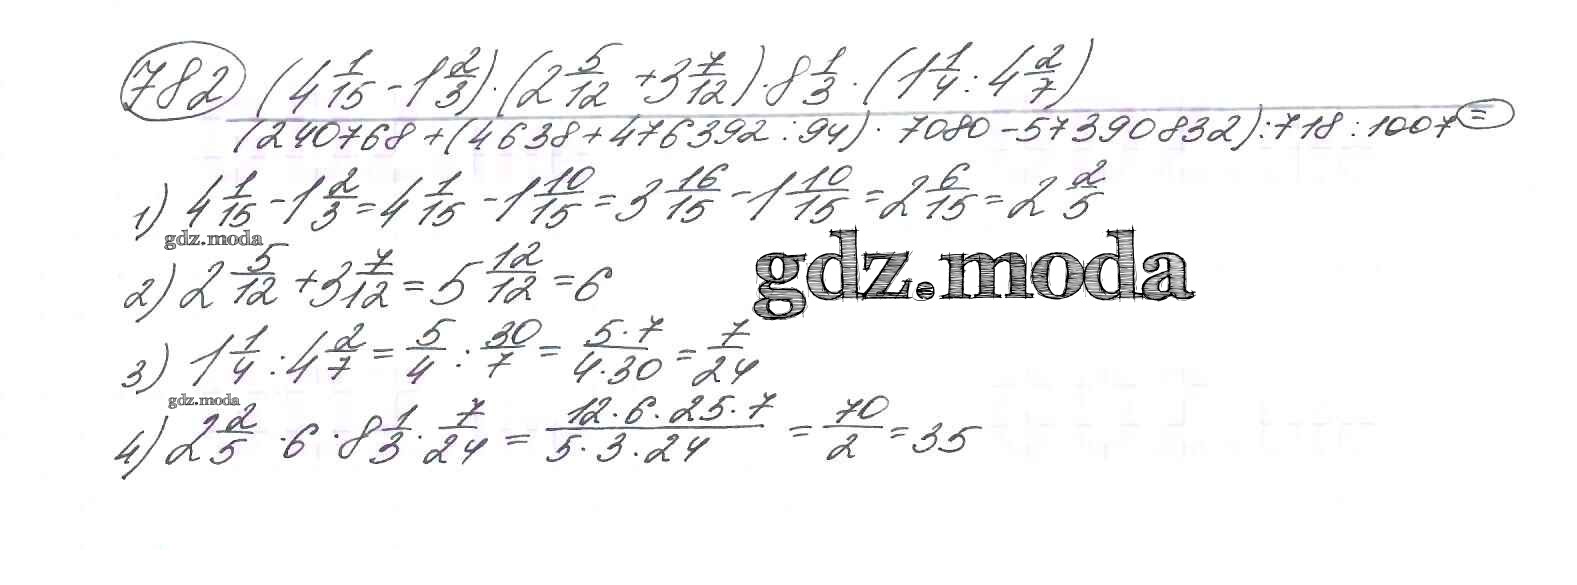 782 (4 1/15 - 1 2/3) · (2 5/12 + 3 7/12) · 8 1/3 · (1 1/4 : 4 2/7)
(240768 + (4638 + 476392 : 94) · 7080 - 57390832) : 718 : 1007 =
1) 4 1/15 - 1 2/3 = 4 1/15 - 1 10/15 = 3 16/15 - 1 10/15 = 2 6/15 = 2 2/5
gdz.moda
2) 2 5/12 + 3 7/12 = 5 12/12 = 6
gdz.moda
3) 1 1/4 : 4 2/7 = 5/4 : 30/7 = 5·7/4·30 = 7/24
gdz.moda
4) 2 2/5 · 6 · 8 1/3 · 7/24 = 12·6·25·7/5·3·24 = 70/2 = 35